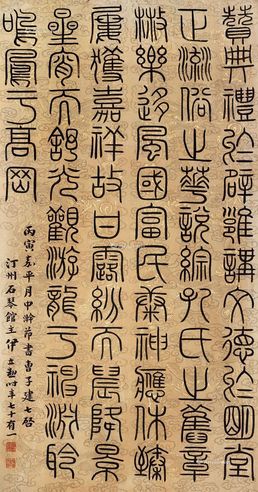 贊典禮於辟雍講文德於明堂
正流俗之華說綜孔氏之舊章
散樂移風國富民康神應休臻
屢獲嘉祥故甘露紛而晨降景
星宵而舒光觀游龍于神淵聆
鳴鳳于高岡
丙寅嘉平月中澣節書曹子建七啓
汀州石琴館主伊立勳時年七十有